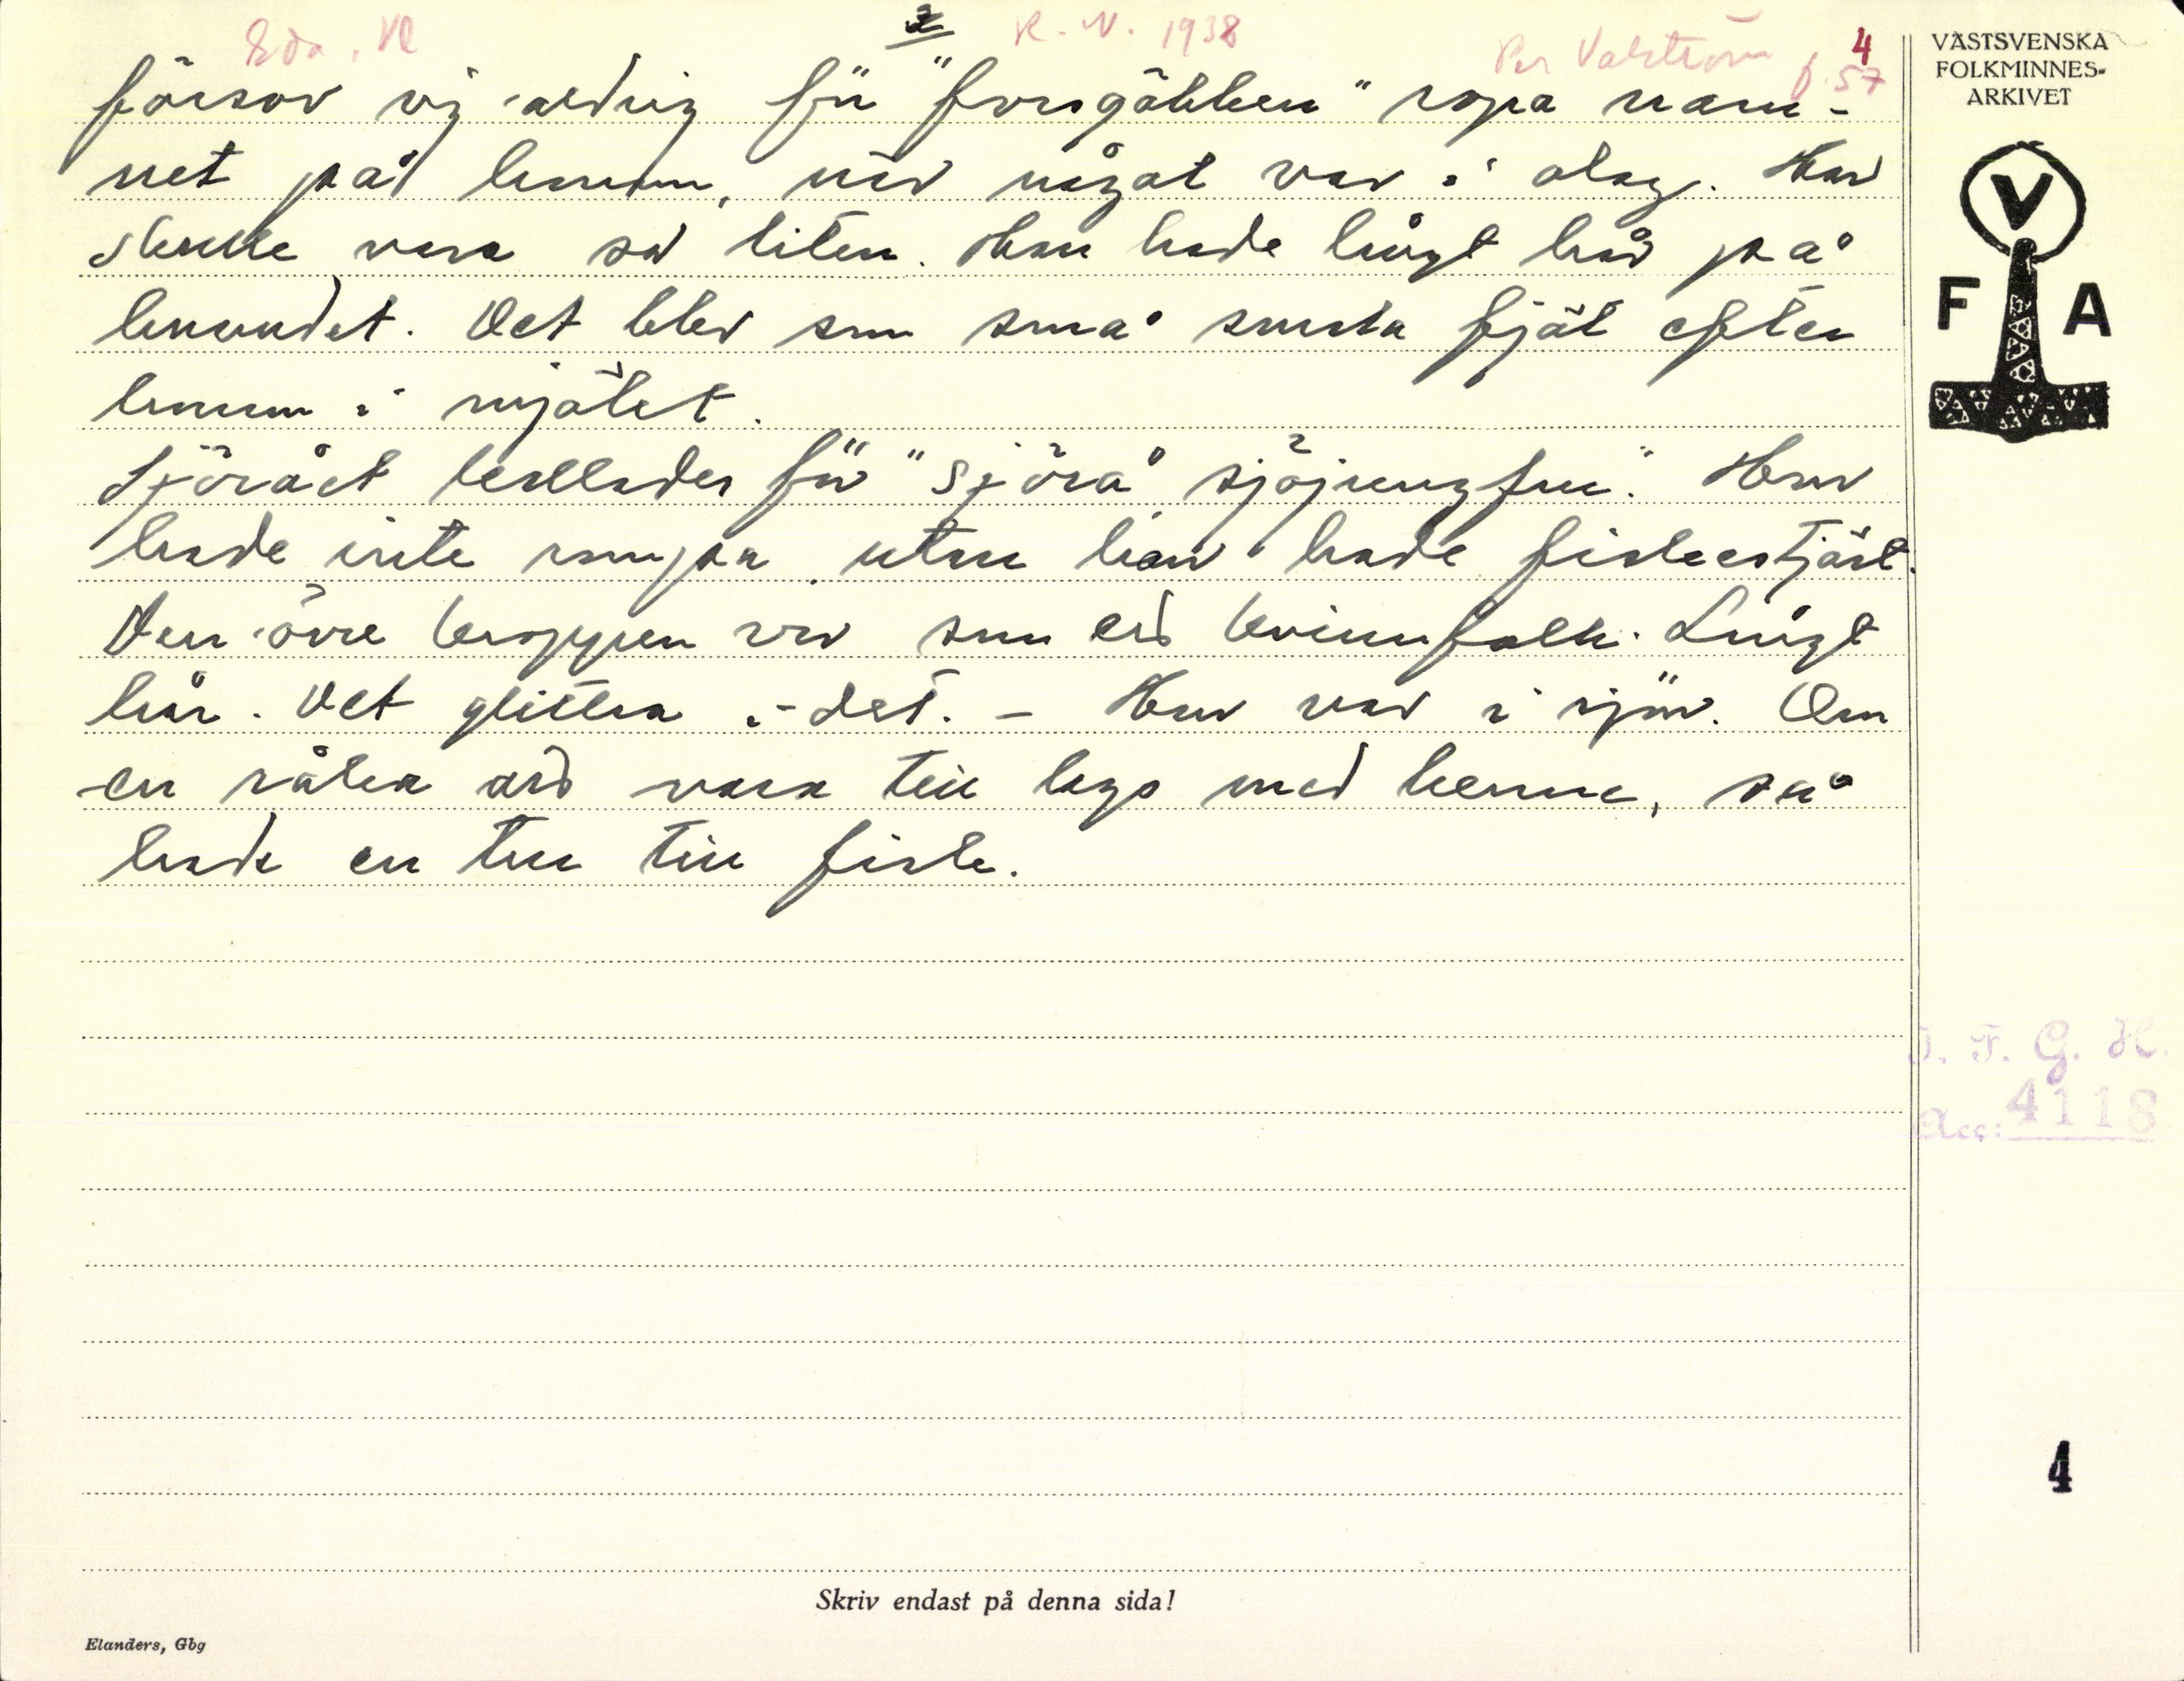 Eda, Vl
2
K. N. 1938
Per Valström
f. 57
4
försov vi aldrig för "forsgubben" ropa nam-
net på honom, när något var i olag. Han
skulle vara så liten. Han hade långt hår på
huvudet. Det blev som små smala fjät efter
honom i mjölet.
Sjörået kallades för "Sjörå" sjöjungfru". Hon
hade inte rumpa, utan hon hade fiskestjärt.
Den övre kroppen var som ett kvinnfolk. Långt
hår. Det glittra i det. - Hon var i sjön. Om
en råka att vara till lags med henne, så
hade en tur till fisk.
VÄSTSVENSKA
FOLKMINNES-
ARKIVET
V
F A
I. F. G. H.
Acc: 4118
4
Skriv endast på denna sida!
Elanders, Gbg